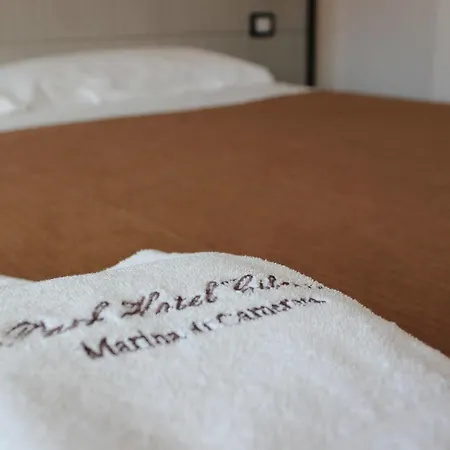 Park Hotel
Marina di Camerota